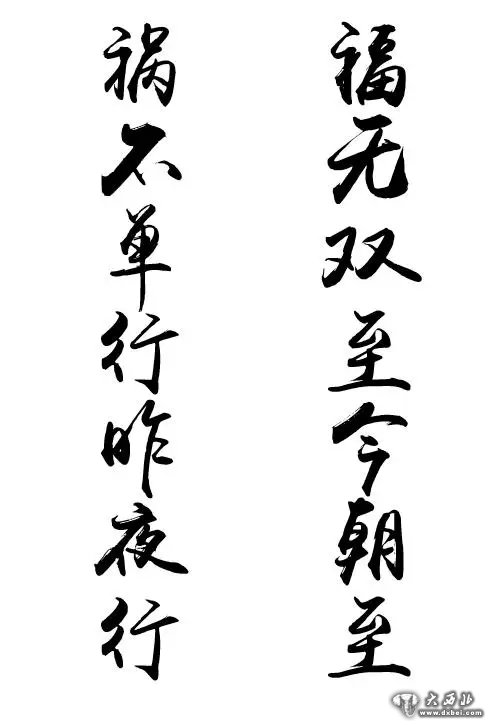 福无双至今朝至
祸不单行昨夜行
大西北
www.dxbei.com